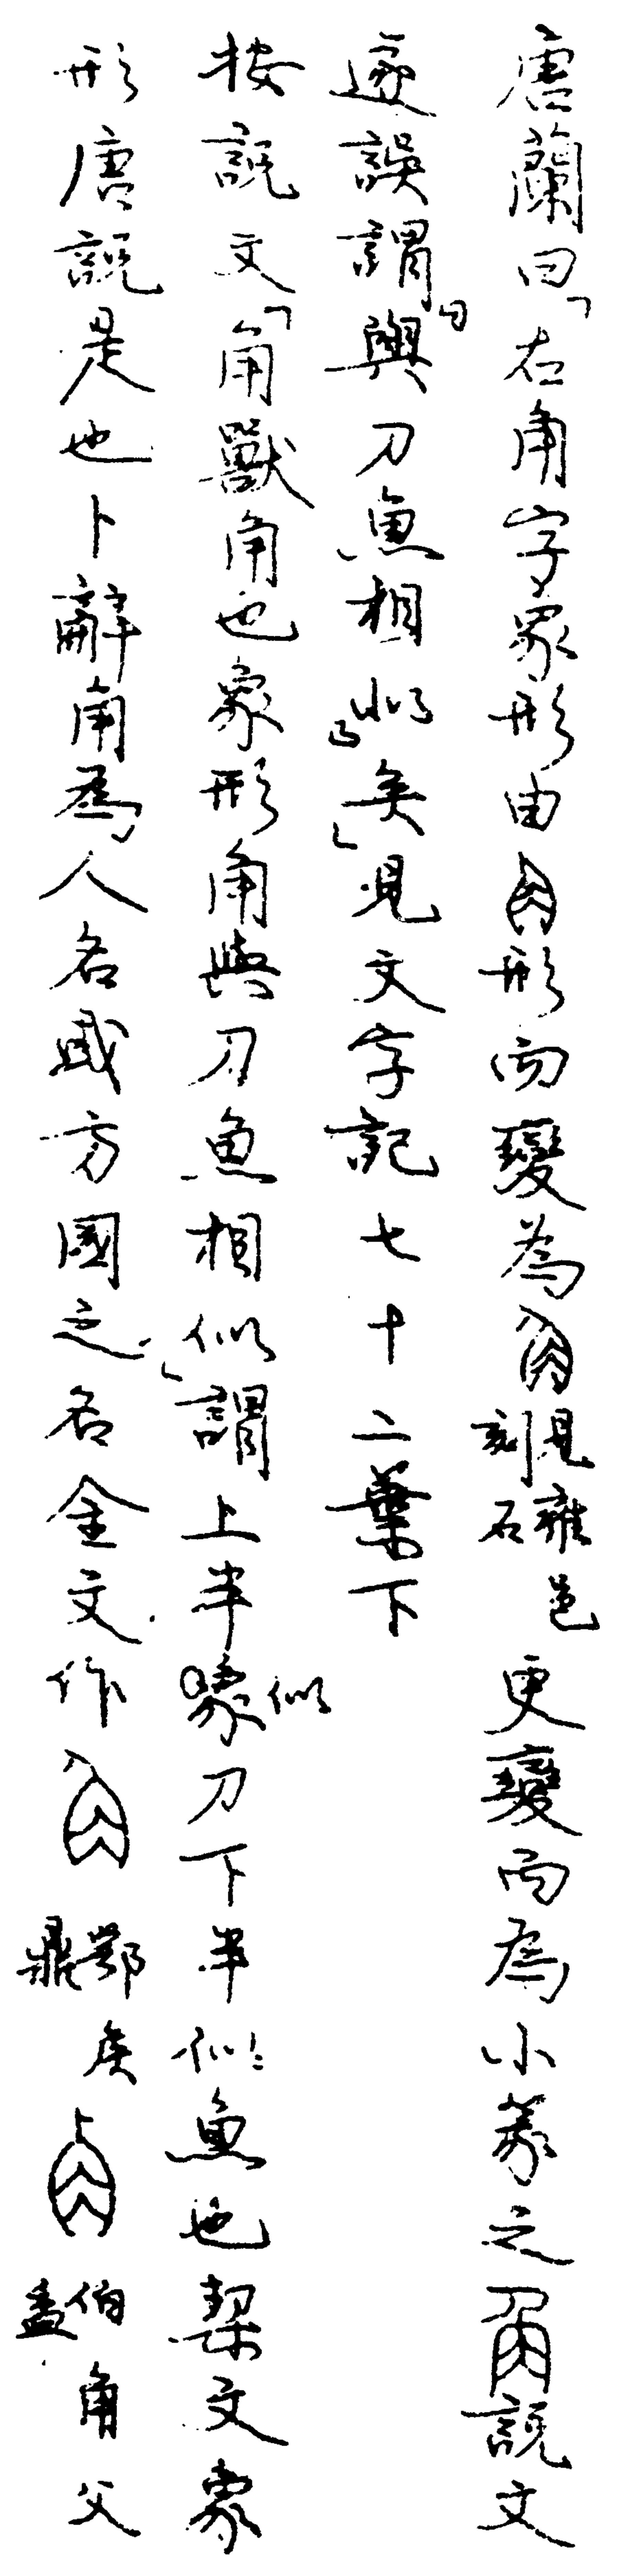 唐蘭曰「右角字象形由形而變為見雍邑刻石更變而為小篆之說文
遂誤謂『與刀魚相似』矣」見文字記七十二葉下
按説文「角獸角也象形角與刀魚相似」謂上半似刀下半似魚也栔文象
形唐説是也卜辭角為人名或方國之名金文作鄂侯鼎伯角父盉